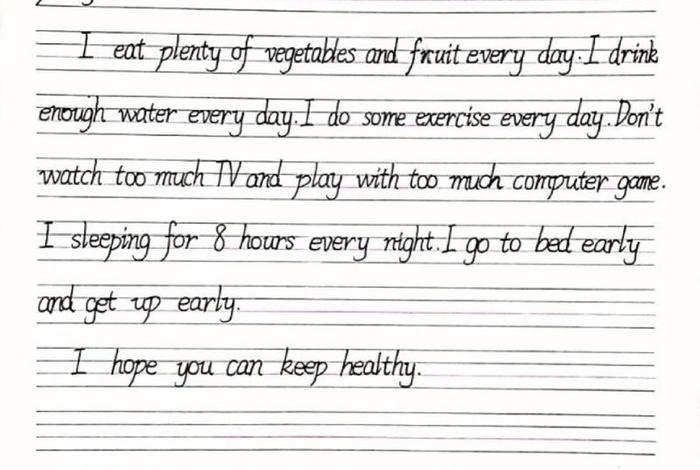 I eat plenty of vegetables and fruit every day. I drink
enough water every day. I do some exercise every day. Don't
watch too much TV and play with too much computer game.
I sleeping for 8 hours every night. I go to bed early
and get up early.
I hope you can keep healthy.